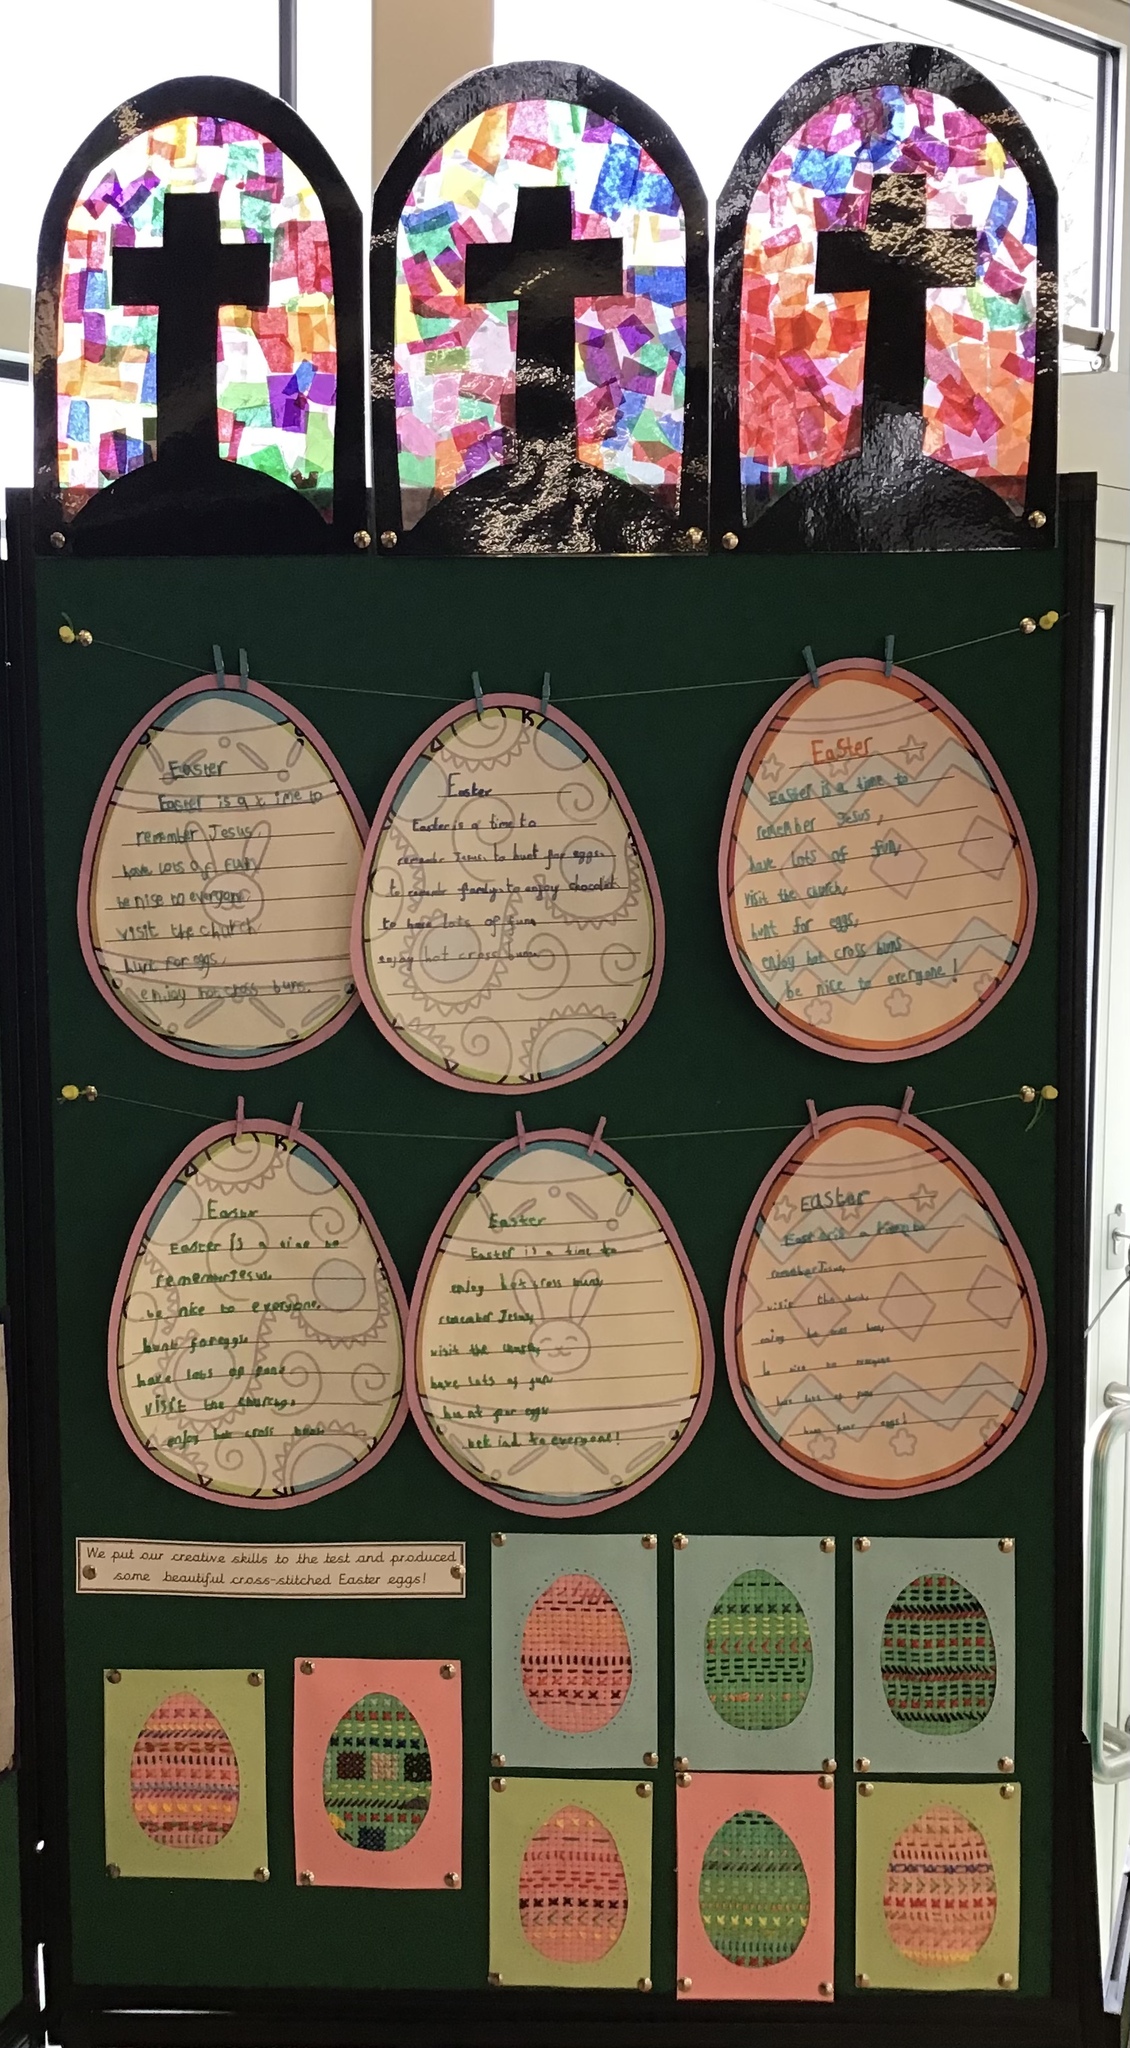 Easter
Easter is a time to
remember Jesus,
have lots of fun,
be nise to everyone,
visit the church
hunt for eggs,
enjoy hot cross buns.
Easter
Easter is a time to
remember Jesus. to hunt for eggs.
to family. to enjoy chocolate
to have lots of fun
enjoy hot cross buns
Easter
Easter is a time to
remember Jesus,
have lots of fun,
visit the church,
hunt for eggs,
enjoy hot cross buns
be nice to everyone!
Easter
Easter is a time to
Jesus,
be nice to everyone,
hunt for eggs,
have lots of
visit the church,
enjoy hot cross
Easter
Easter is a time to
enjoy hot cross buns,
remember Jesus,
visit the
have lots of fun
hunt for eggs
be kind to everyone!
Easter
Easter is a time to
Jesus,
visit the
be nice to everyone
eggs!
We put our creative skills to the test and produced
some beautiful cross-stitched Easter eggs!